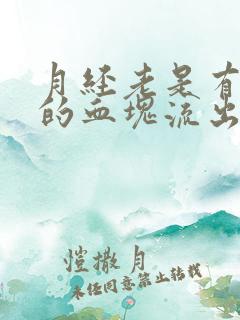 月经老是有
的血块流出
恺撒月
未经同意禁止转载